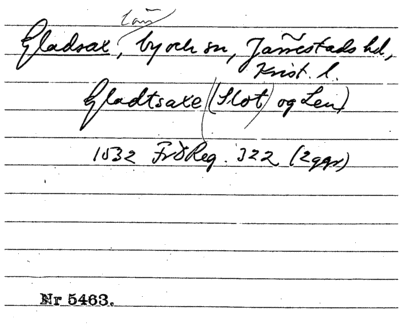 län
Gladsax, by och sn, Järrestads hd,
Krist. l.
Gladtsaxe (Slot) og Len)
1532 FrdReg. 322 (2ggr)
Nr 5463.